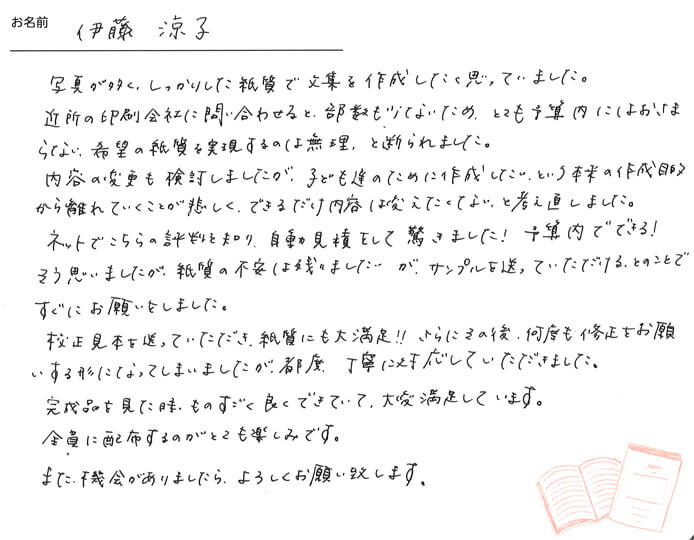 お名前 伊藤 涼子
写真が多く、しっかりした紙質で文集を作成したいと思っていました。
近所の印刷会社に問い合わせると、部数も少ないため、とても予算内にはおさま
らない、希望の紙質を実現するのは無理、と断られました。
内容の変更も検討しましたが、子ども達のために作成したい、という本来の作成目的
から離れていくことが悲しく、できるだけ内容は変えたくない、と考え直しました。
ネットでこちらの評判を知り、自動見積をして驚きました！予算内でできる！
そう思いましたが、紙質の不安は残りましたが、サンプルを送っていただける、とのことで
すぐにお願いをしました。
校正見本を送っていただき、紙質にも大満足!! さらにその後、何度も修正をお願
いする形になってしまいましたが、都度、丁寧に対応していただきました。
完成品を見た時、ものすごく良くできていて、大変満足しています。
全員に配布するのがとても楽しみです。
また、機会がありましたら、よろしくお願い致します。